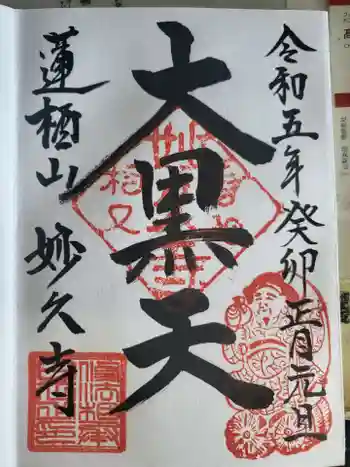 令和五年癸卯正月元旦
大黒天
蓮栖山
妙久寺